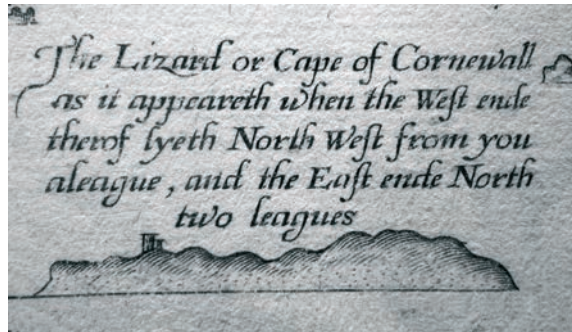 The Lizard or Cape of Cornewall
as it appeareth when the Weſt ende
therof lyeth North Weſt from you
aleague, and the Eaſt ende North
two leagues